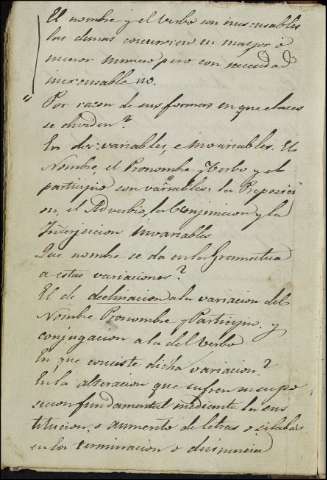 El nombre y el Verbo son inescusables
las demas concurren en mayor o
menor numero pero con necesidad
inescusable no.
Por razon de sus formas en que clases
se dividen?
En dos: variables, e invariables. El
Nombre, el Pronombre, Verbo y el
participio son variables: la Preposici
on, el Adverbio, la Conjuncion y la
Interjecion invariables.
Que nombre se da en la Gramatica
a estas variaciones?
El de declinacion a la variacion del
Nombre Pronombre y Participio, y
conjugacion a la del Verbo
En que consiste dicha variacion?
En la alteracion que sufren su espo
sicion fundamental mediante la sus
titucion, o aumento de letras o silabas
en la terminacion o